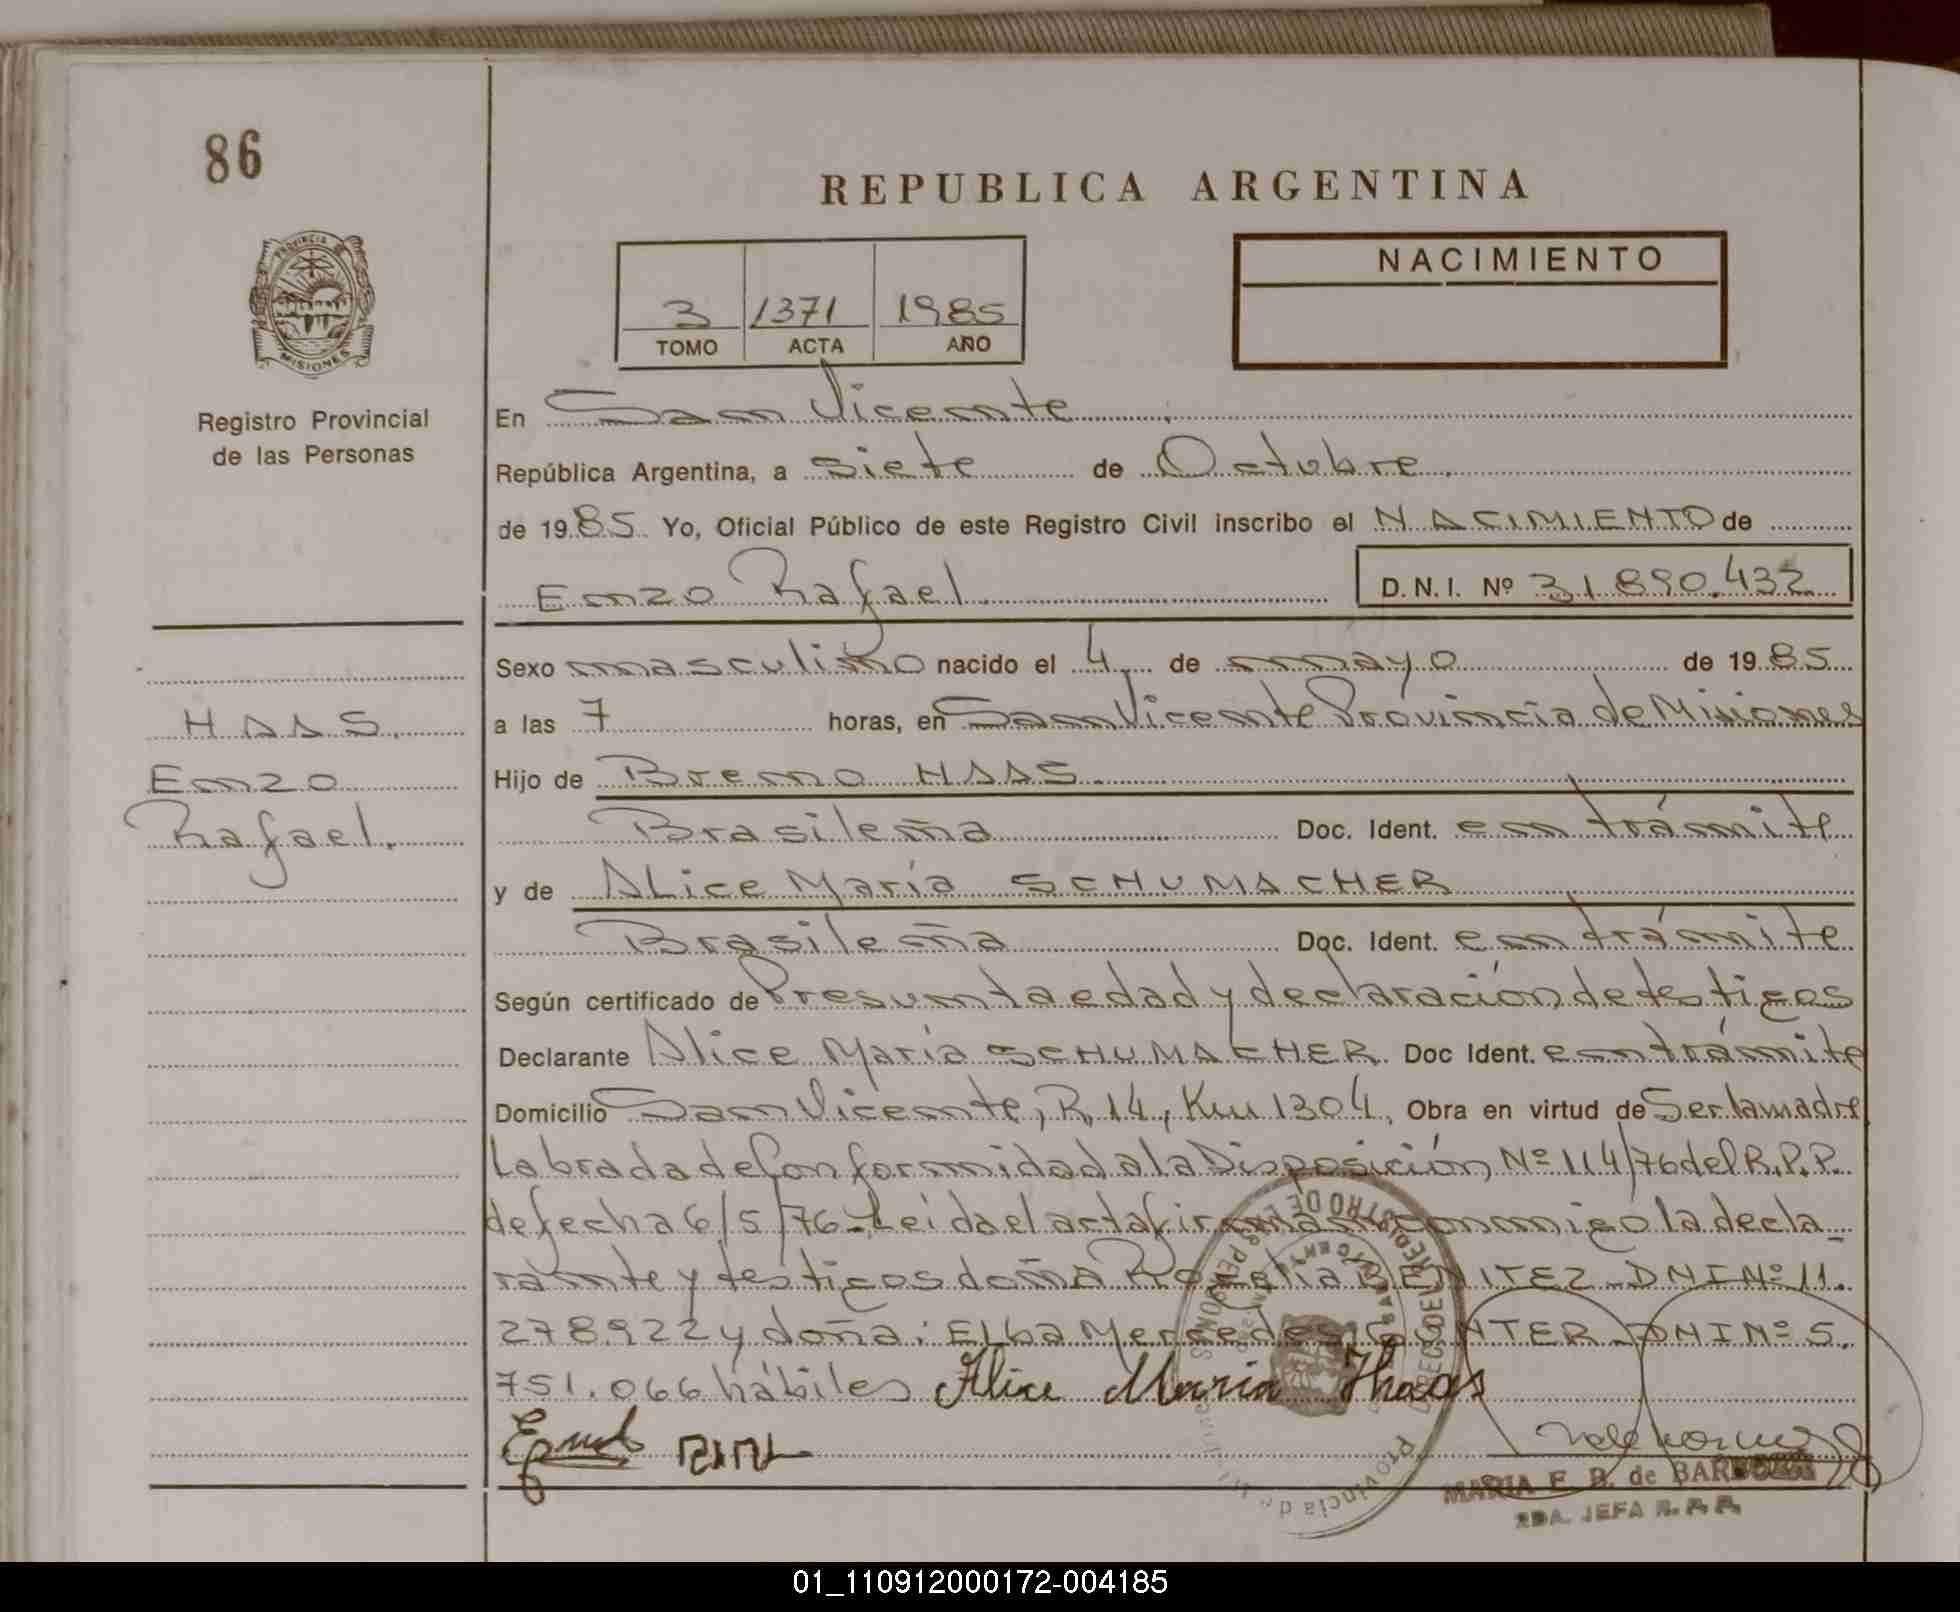 86
REPUBLICA ARGENTINA
PROVINCIA DE
MISIONES
Registro Provincial
de las Personas
3 1371 1985
TOMO ACTA AÑO
NACIMIENTO
En San Vicente
República Argentina, a siete de Octubre.
de 1985 Yo, Oficial Público de este Registro Civil inscribo el NACIMIENTO de
Enzo Rafael D.N.I. Nº 31.890.432
Sexo masculino nacido el 4 de mayo de 1985
a las 7 horas, en San Vicente Provincia de Misiones
HAAS.
Enzo
Rafael.
Hijo de Breno HAAS.
Brasileña Doc. Ident. en trámite
y de ALice María SCHUMACHER
Brasileña Doc. Ident. en trámite
Según certificado de Presunta edad y declaración de testigos
Declarante Alice María SCHUMACHER. Doc Ident. en trámite
Domicilio San Vicente, R. 14, Km 1304, Obra en virtud de Ser la madre
Labrada de Conformidad a la Disposición Nº 114/76 del R.P.P.
de fecha 6/5/76. Leída el acta firman conmigo la decla-
rante y testigos doña Rogelia BENITEZ DNI Nº 11.
278.922 y doña: ELba Mercedes GUNTER DNI Nº 5.
751.066 hábiles Alice Maria Haas
MARIA E. B. de BARBOZA
2DA. JEFA R. P. P.
01_110912000172-004185